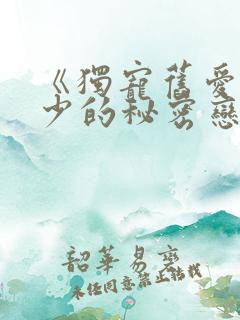 《獨寵舊愛
少的秘密戀
韶華易變
未經同意禁止轉載